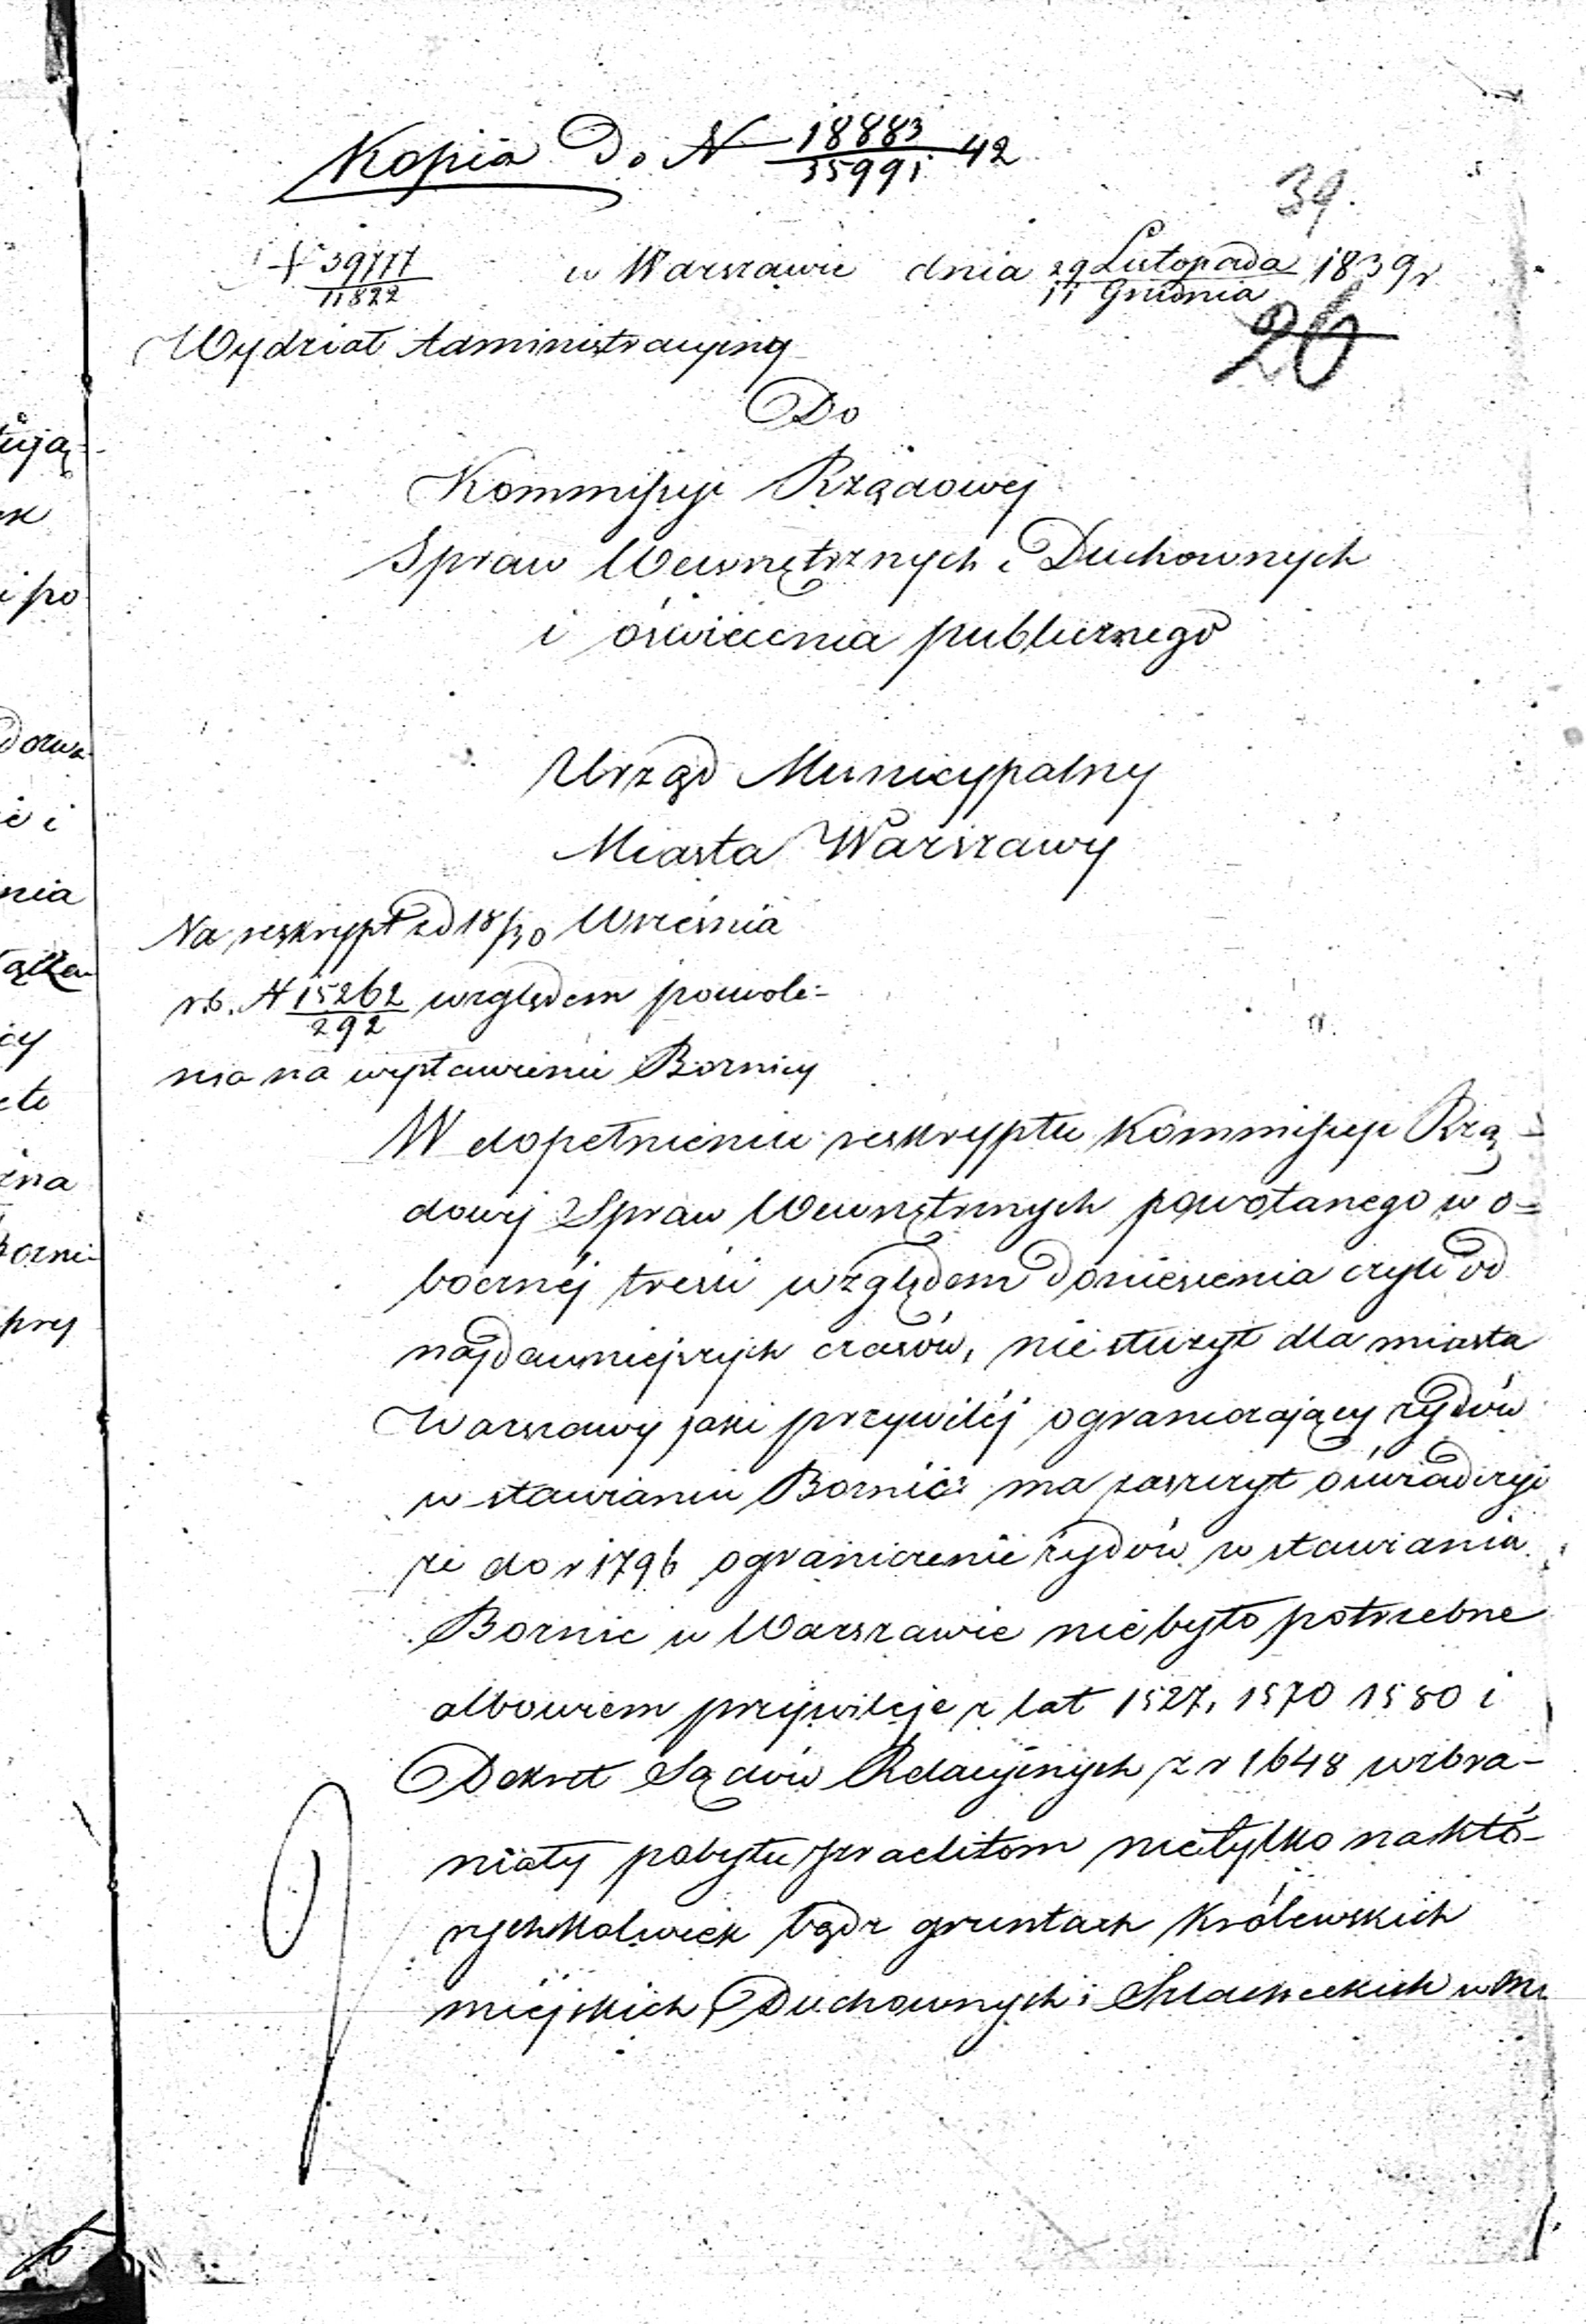 Kopia Do N 18883/35991 42
39.
N 39777/11822 w Warszawie dnia 29 Listopada/11 Grudnia 1839 r
26
Wydział Administracyiny
Do
Kommissyi Rządowej
Spraw Wewnętrznych i Duchownych
i oświecenia publicznego
Urząd Municypalny
Miasta Warszawy
Na reskrypt z d 18/30 Września
r.b. N 15262/292 względem pozwole-
nia na wystawienie Boznicy
W dopełnieniu reskryptu Kommissyi Rzą-
dowej Spraw Wewnętrznych powołanego w o-
bocznéj treści względem doniesienia czyli od
najdawniejszych czasów, nie służył dla miasta
Warszawy jaki przywilej ograniczający żydów
w stawianiu Boznic: ma zaszczyt oświadczyć
że do r 1796 ograniczenie żydów w stawianiu
Boznic w Warszawie nie było potrzebne
albowiem przywileje z lat 1527, 1570 1580 i
Dekret Sądów Relacyinych z r 1648 wzbra-
niały pobytu Izraelitom nietylko na któ-
rychkolwiek bądz gruntach Królewskich
miejskich, Duchownych i Szlacheckich w Mi
ują-
i po
nia
cy
zna